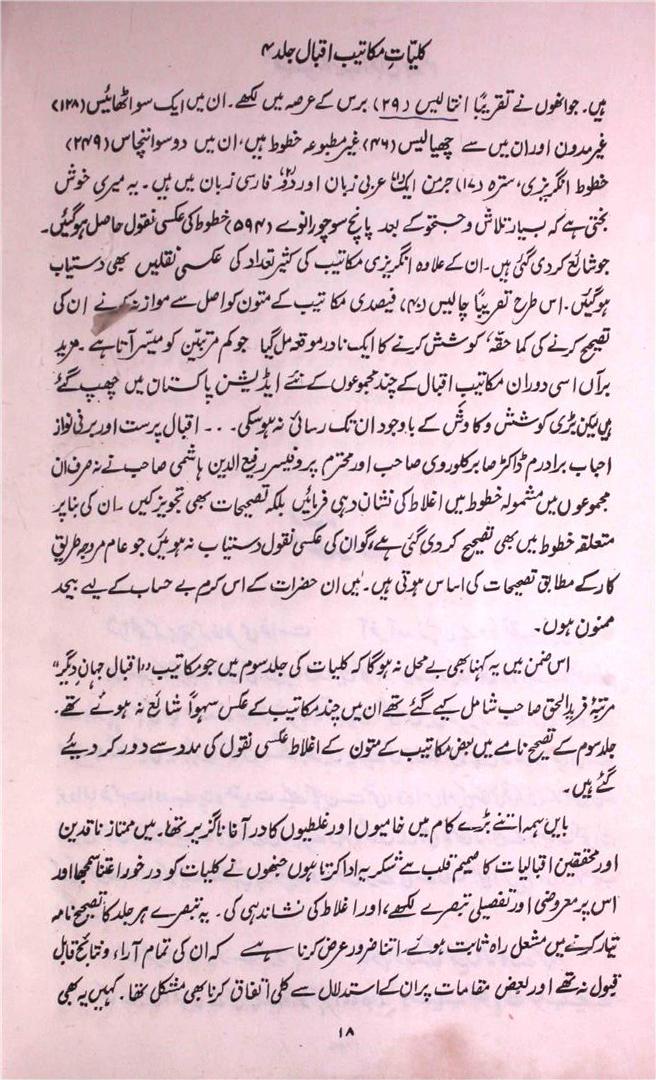 کلیّاتِ مکاتیب اقبال جلد ۴
ہیں۔ جو انھوں نے تقریباً انتالیس (۲۹) برس کے عرصہ میں لکھے۔ ان میں ایک سو اٹھائیس (۱۲۸)
غیر مدون اور ان میں سے چھیالیس (۴۶) غیر مطبوعہ خطوط ہیں، ان میں دو سو انچاس (۲۴۹)
خطوط انگریزی، سترہ (۱۷) جرمن ایک عربی زبان اور دو فارسی زبان میں ہیں۔ یہ میری خوش
بختی ہے کہ بسیار تلاش و جستجو کے بعد پانچ سو چورانوے (۵۹۴) خطوط کی عکسی نقول حاصل ہوگئیں۔
جو شائع کردی گئی ہیں۔ ان کے علاوہ انگریزی مکاتیب کی کثیر تعداد کی عکسی نقلیں بھی دستیاب
ہوگئیں۔ اس طرح تقریباً چالیس (۴۰) فیصدی مکاتیب کے متون کو اصل سے موازنہ کرنے ان کی
تصحیح کرنے کی کما حقہٗ کوشش کرنے کا ایک نادر موقعہ مل گیا جو کم مرتبین کو میسّر آتا ہے۔ مزید
برآں اسی دوران مکاتیب اقبال کے چند مجموعوں کے نئے ایڈیشن پاکستان میں چھپ گئے
ہیں لیکن بڑی کوشش و کاوش کے باوجود ان تک رسائی نہ ہوسکی۔ . . اقبال پرست اور برنی نواز
احباب برادرم ڈاکٹر صابر کلوروی صاحب اور محترم پروفیسر رفیع الدین ہاشمی صاحب نے نہ صرف ان
مجموعوں میں مشمولہ خطوط میں اغلاط کی نشان دہی فرمائیں بلکہ تصحیحات بھی تجویز کیں۔ ان کی بنا پر
متعلقہ خطوط میں بھی تصحیح کردی گئی ہے، گو ان کی عکسی نقول دستیاب نہ ہوئیں جو عام مروجہ طریق
کار کے مطابق تصحیحات کی اساس ہوتی ہیں۔ میں ان حضرات کے اس کرم بے حساب کے لیے بیحد
ممنون ہوں۔
اس ضمن میں یہ کہنا بھی بے محل نہ ہوگا کہ کلیات کی جلد سوم میں جو مکاتیب "اقبال جہانِ دیگر"
مرتبہٗ فرید الحق صاحب شامل کیے گئے تھے ان میں چند مکاتیب کے عکس سہواً شائع نہ ہوئے تھے۔
جلد سوم کے تصحیح نامے میں بعض مکاتیب کے متون کے اغلاط عکسی نقول کی مدد سے دور کردیئے
گئے ہیں۔
بایں ہمہ اتنے بڑے کام میں خامیوں اور غلطیوں کا در آنا ناگزیر تھا۔ میں ممتاز ناقدین
اور محققین اقبالیات کا صمیم قلب سے شکریہ ادا کرتا ہوں جنھوں نے کلیات کو درخور اعتنا سمجھا اور
اس پر معروضی اور تفصیلی تبصرے لکھے، اور اغلاط کی نشاندہی کی۔ یہ تبصرے ہر جلد کا تصحیح نامہ
تیار کرنے میں مشعل راہ ثابت ہوئے۔ اتنا ضرور عرض کرنا ہے کہ ان کی تمام آراء و نتائج قابل
قبول نہ تھے اور بعض مقامات پر ان کے استدلال سے کلی اتفاق کرنا بھی مشکل تھا۔ کہیں یہ بھی
۱۸